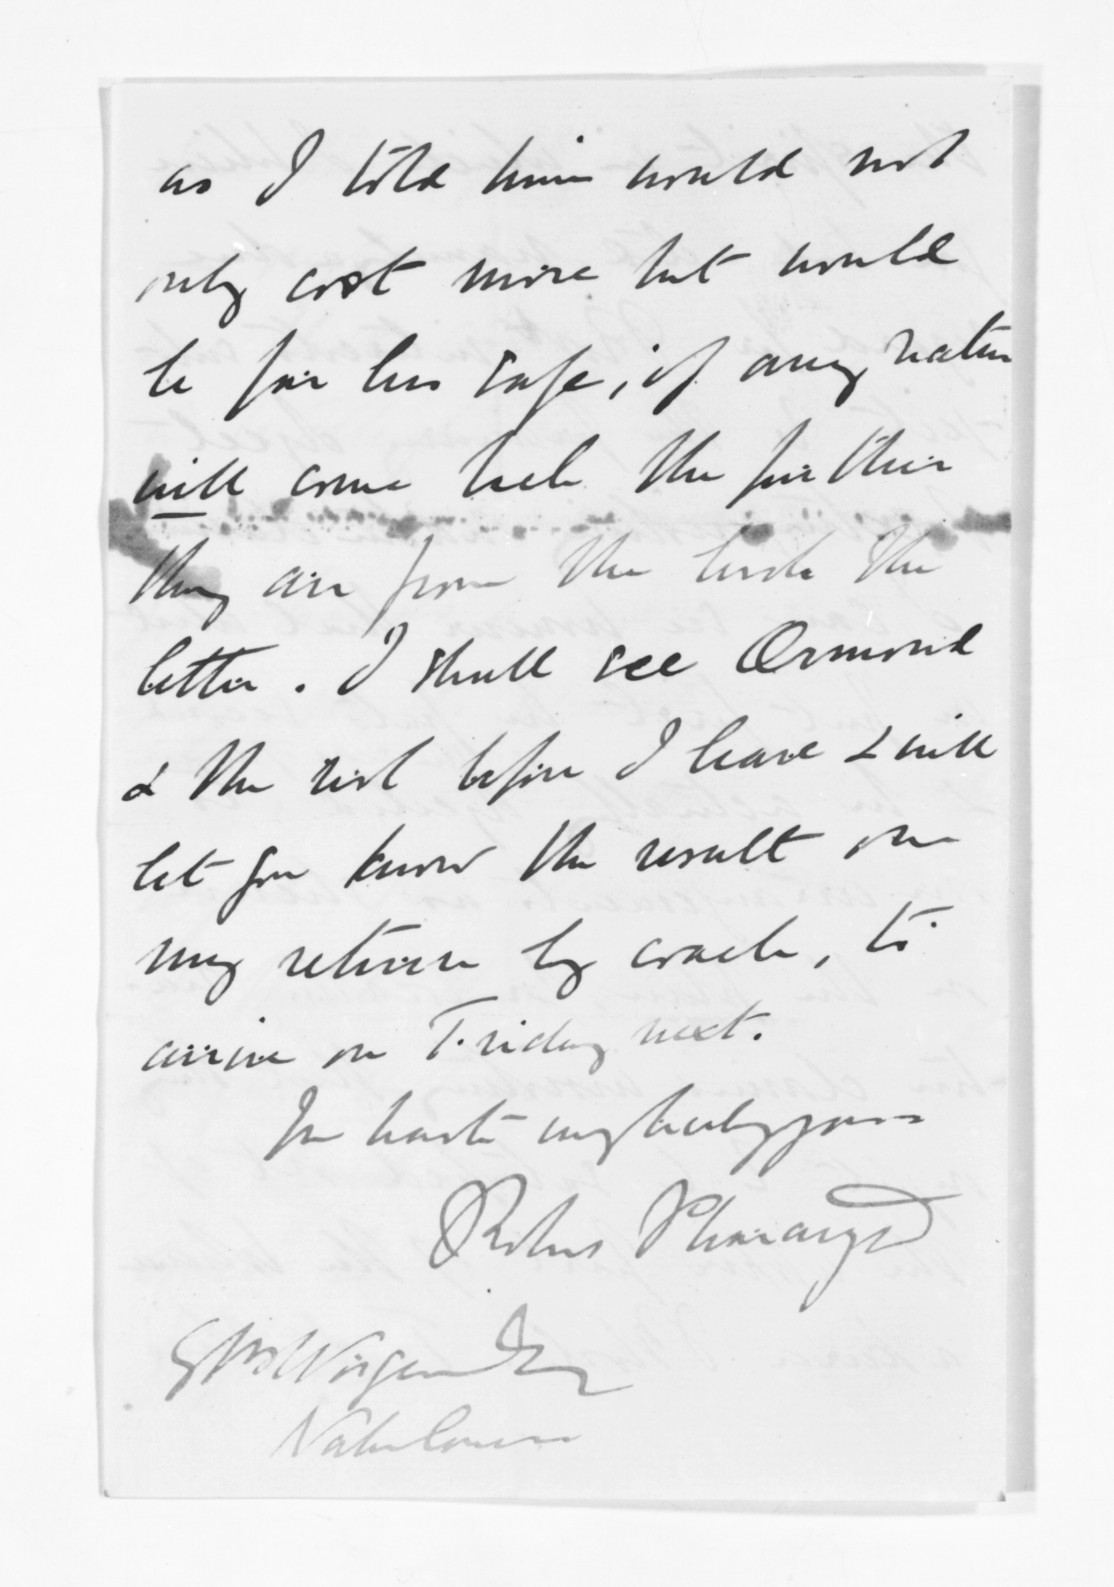 as I told him would not
only cost more but would
be far less safe, if any natives
will come back the further
they are from the lands the
better. I shall see Ormond
& the rest before I leave & will
let you know the result on
my return by coach, to
arrive on Friday next.
In haste very truly yours
G S Worgan Esq